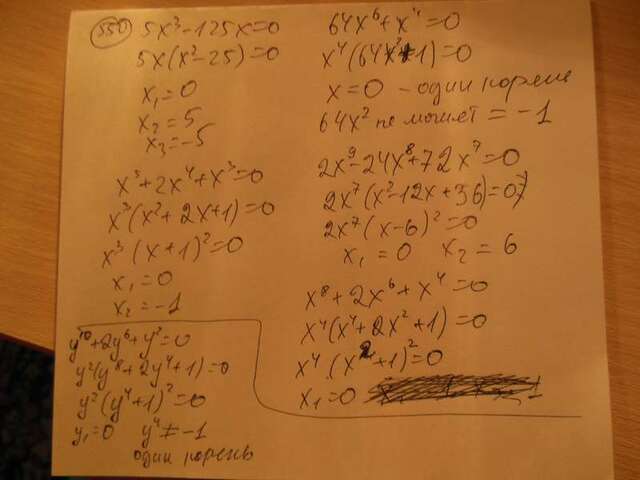 550 5x³-125x=0
5x(x²-25)=0
x₁=0
x₂=5
x₃=-5
x⁵+2x⁴+x³=0
x³(x²+2x+1)=0
x³(x+1)²=0
x₁=0
x₂=-1
y¹⁰+2y⁶+y²=0
y²(y⁸+2y⁴+1)=0
y²(y⁴+1)²=0
y₁=0 y⁴≠-1
один корень
64x⁶+x⁴=0
x⁴(64x²+1)=0
x=0 - один корень
64x² не может = -1
2x⁹-24x⁸+72x⁷=0
2x⁷(x²-12x+36)=0
2x⁷(x-6)²=0
x₁=0 x₂=6
x⁸+2x⁶+x⁴=0
x⁴(x⁴+2x²+1)=0
x⁴(x²+1)²=0
x₁=0